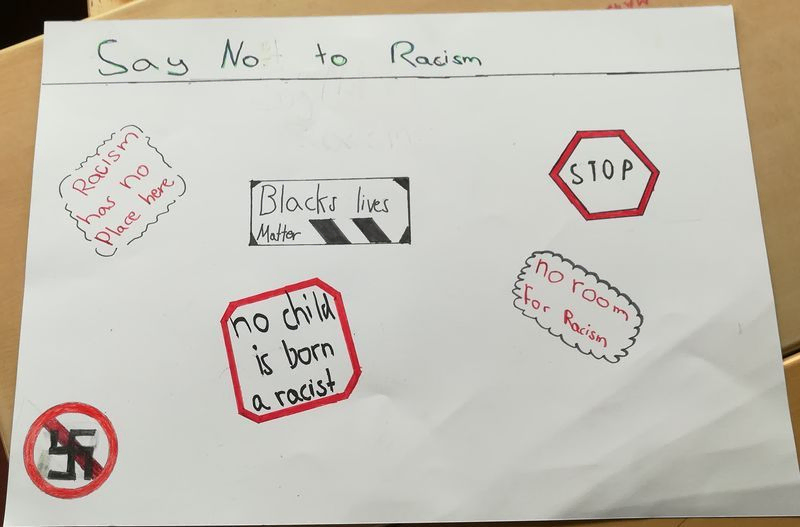 Say No to Racism
Racism
has no
Place here
Blacks lives
Matter
STOP
no child
is born
a racist
no room
For Racism